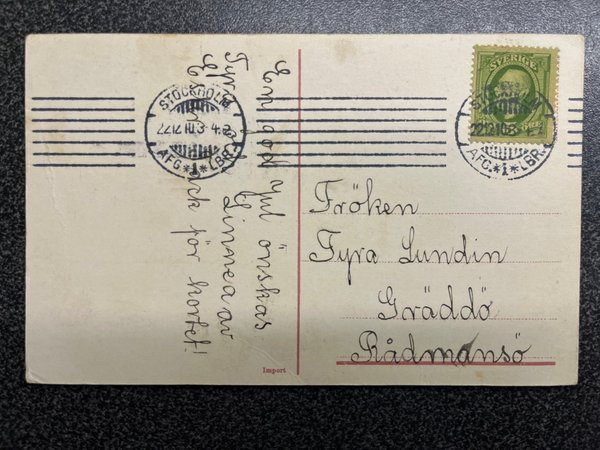 En god jul önskas
Tyra o Linnea av
E
ck för kortet!
STOCKHOLM
22 12 10 3-4 E
AFG. * 1 * LBR.
SVERIGE
22 12 10 3-4 E
AFG. * 1 * LBR.
Fröken
Tyra Lundin
Gräddö
Rådmansö
Import